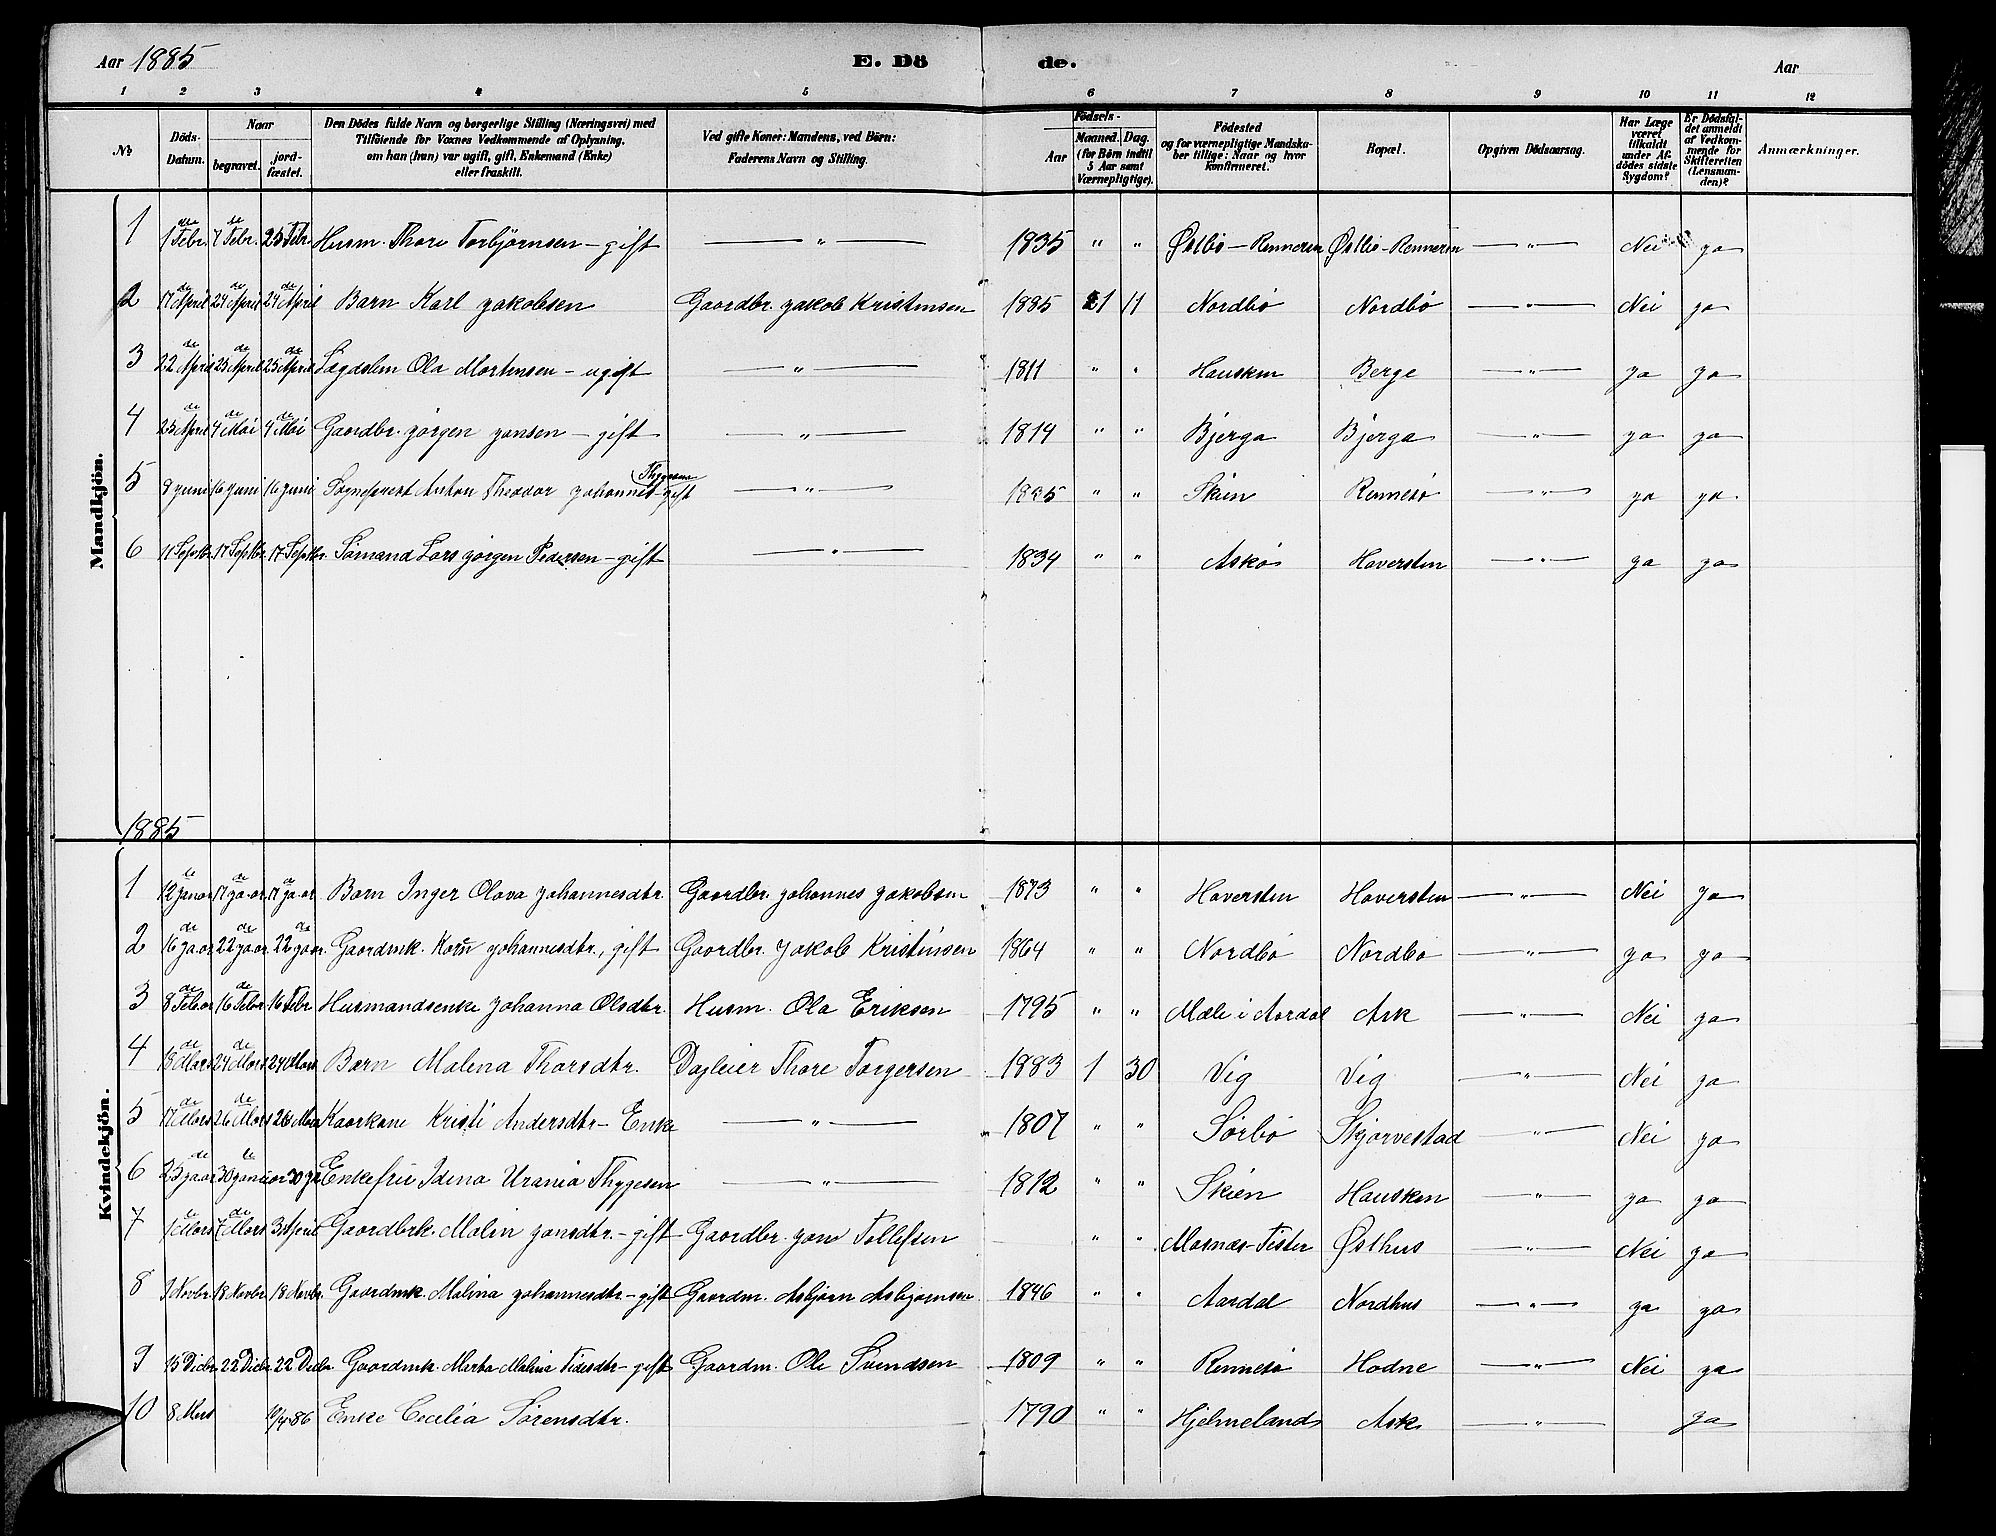 Aar 1885 E. Dö de. Aar
1 2 3 4 5 6 7 8 9 10 11 12
№ Döds-Datum. Naar begravet. jord-fæstet. Den Dödes fulde Navn og borgerlige Stilling (Næringsvei) med Tilföiende for Voxnes Vedkommende af Oplysning, om han (hun) var ugift, gift, Enkemand (Enke) eller fraskilt. Ved gifte Koner: Mandens, ved Börn: Faderens Navn og Stilling. Födsels- Aar Maaned. Dag. (for Börn indtil 5 Aar samt Værnepligtige). Födested og for værnepligtige Mandskaber tillige: Naar og hvor konfirmeret. Bopæl. Opgiven Dödsaarsag. Har Læge været tilkaldt under Afdödes sidste Sygdom? Er Dödsfaldet anmeldt af Vedkommende for Skifteretten (Lensmanden)? Anmærkninger.
Mandkjön.
1 1 de Febr. 7 de Febr. 25 Febr. Husm. Thore Torbjørnsen – gift — " — 1835 " " Østbø – Rennesø Østbø – Rennesø — " — Nei ja
2 17 de April 24 de April 24 de April Barn Karl Jakobsen Gaardbr. Jakob Kristensen 1885 1 11 Nordbø Nordbø — " — Nei ja
3 22 de April 25 de April 25 de April Lægdslem Ola Mortensen – ugift — " — 1811 " " Hausken Berge — " — ja ja
4 25 de April 4 de Mai 4 de Mai Gaardbr. Jørgen Jansen – gift — " — 1814 " " Bjerga Bjerga — " — ja ja
5 8 Juni 16 Juni 16 Juni Sogneprest Anton Theodor Johannes Thygesen – gift — " — " " Skien Rennesø — " — ja ja
6 11 Septbr. 17 Septbr. 17 Septbr. Sømand Lars Jørgen Pedersen – gift — " — 1834 " " Askø Haversten — " — ja ja
1885
Kvindekjön.
1 12 de Januar 17 de Ja-ar 17 de Ja-ar Barn Inger Olava Johannesdtr. Gaardbr. Johannes Jakobsen 1873 " " Haversten Haversten — " — Nei ja
2 16 de Ja.ar 22 de Ja ar 22 de Ja ar. Gaardmk. Kari Johannesdtr., gift Gaardbr. Jakob Kristensen 1864 " " Nordbø Nordbø — " — ja ja
3 8 de Feb.ar 16 de Febr 16 Febr Husmandsenke Johanna Olsdtr. Husm. Ola Eriksen 1795 " " Mæle i Aardal Ask — " — Nei ja
4 18 de Mars 24 de Mars 24 Mars Barn Malena Thorsdtr. Dagleier Thore Torgersen 1883 1 30 Vig Vig — " — Nei ja
5 17 de Mars 26 de Mars 26 Mars Kaarkone Kristi Andersdtr – Enke — " — 1807 " " Sørbø Skjørvestad — " — Nei ja
6 25 de Ja ar 30 te Januar 30 Ja Enkefrue Idena Urania Thygesen — " — 1812 " " Skien Hausken — " — ja ja
7 1 te Mars 7 de Mars 3 April Gaardbrk. Malin Jansdtr. – gift Gaardbr. Jone Tollefsen " " Mosnæs – Fister Østhus — " — Nei ja
8 9 Novbr. 18 Novbr 18 Novbr. Gaardmk. Malina Johannesdtr – gift Gaardm. Asbjørn Asbjørnsen 1846 " " Aardal Nordhus — " — ja ja
9 15 Decbr. 22 Decbr 22 Decbr Gaardmk. Marta Malina Tidesdtr – gift Gaardm. Ole Svendsen 1809 " " Rennesø Hodne — " — Nei ja
10 8 Mars 10/4-86 Enke Cecilia Sørensdtr. 1790 " " Hjelmeland Ask — " — ja